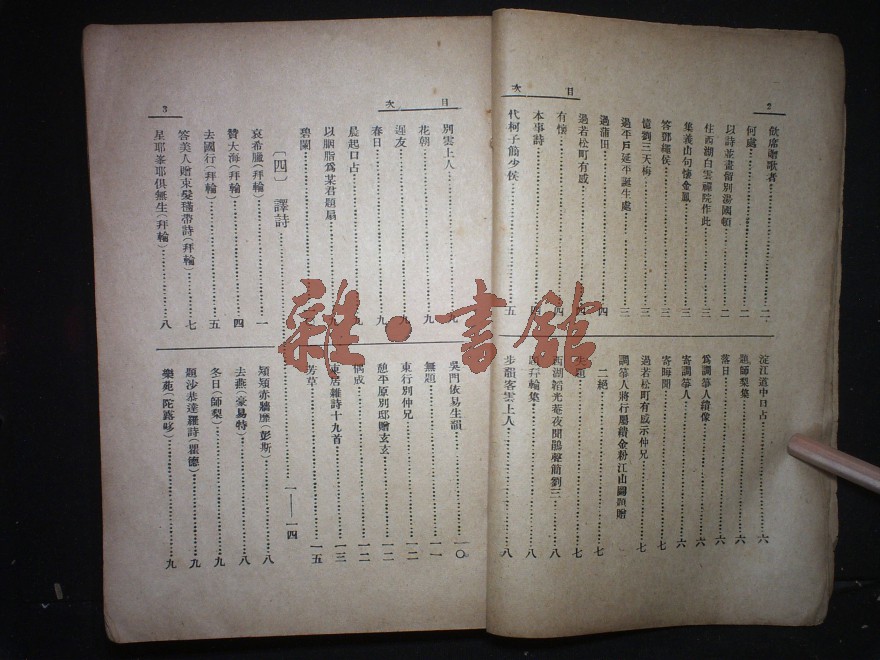 目次
2
飲席贈歌者……二
何處……二
以詩並畫留別湯國頓……二
住西湖白雲禪院作此……三
集義山句懷金鳳……三
答鄧繩侯……三
憶劉三天梅……三
過平戶延平誕生處……三
過蒲田……四
過若松町有感……四
有懷……四
本事詩……四
代柯子簡少侯……五
淀江道中口占……六
題師梨集……六
落日……六
為調箏人繪像……六
寄調箏人……六
寄晦聞……七
過若松町有感示仲兄……七
調箏人將行屬繪金粉江山圖題贈
二絕……七
失題……七
西湖韜光菴夜聞鵑聲簡劉三……八
題拜輪集……八
步韻答雲上人……八
目次
3
別雲上人……九
花朝……九
遲友……九
春日……九
晨起口占……九
以胭脂為某君題扇……九
碧闌……九
〔四〕 譯詩……一——一四
哀希臘(拜輪)……一
贊大海(拜輪)……四
去國行(拜輪)……五
答美人贈束髮𣰽帶詩(拜輪)……七
星耶峯耶俱無生(拜輪)……八
吳門依易生韻……一〇
無題……一一
東行別仲兄……一二
憩平原別邸贈玄玄……一二
偶成……一二
東居雜詩十九首……一三
芳草……一五
熲熲赤牆靡(彭斯)……八
去燕(豪易特)……八
冬日(師梨)……九
題沙恭達羅詩(瞿德)……九
樂苑(陀露哆)……九
雜·書館